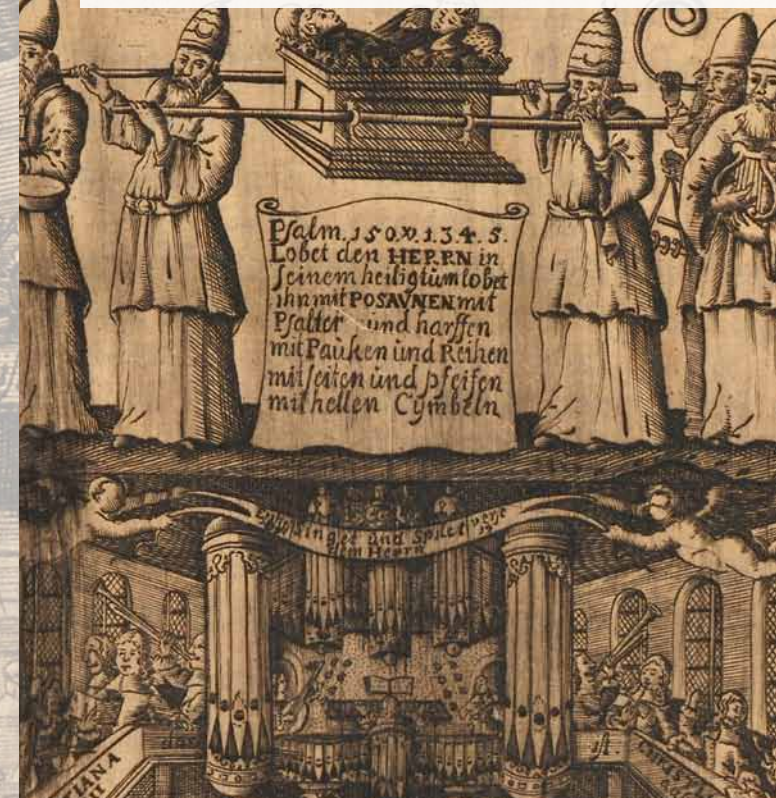 Psalm. 150. v. 1. 3. 4. 5.
Lobet den HERRN in
seinem heiligtüm lobet
ihn mit POSAVNEN mit
Psalter und harffen
mit Pauken ünd Reihen
mit seiten ünd pfeifen
mit hellen Cÿmbeln
Singet und Spilet
dem Herrn
das
ist
IANA
CHRISTI